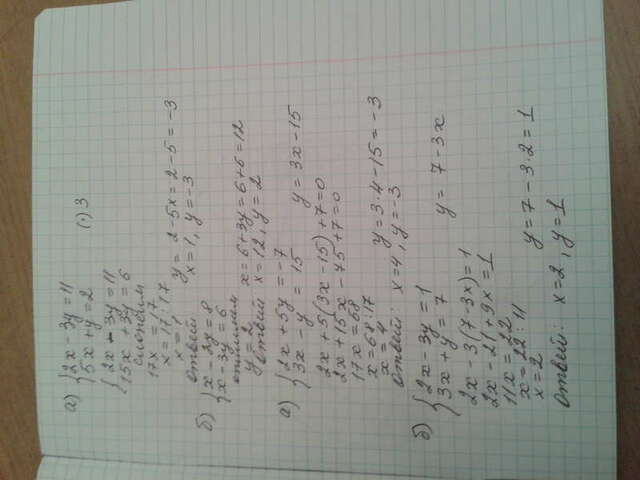 а) {2x - 3y = 11
{5x + y = 2 (·) 3
{2x - 3y = 11
{15x + 3y = 6
сложим
17x = 17
x = 17 : 17
x = 1 y = 2 - 5x = 2 - 5 = -3
Ответ x = 1, y = -3
б) {x - 2y = 8
{x - 3y = 6 x = 6 + 3y = 6 + 6 = 12
отнимаем
y = 2
Ответ x = 12, y = 2
а) {2x + 5y = -7
{3x - y = 15 y = 3x - 15
2x + 5(3x - 15) + 7 = 0
2x + 15x - 75 + 7 = 0
17x = 68
x = 68 : 17
x = 4 y = 3 · 4 - 15 = -3
Ответ: x = 4, y = -3
б) {2x - 3y = 1
{3x + y = 7 y = 7 - 3x
2x - 3(7 - 3x) = 1
2x - 21 + 9x = 1
11x = 22
x = 22 : 11
x = 2 y = 7 - 3 · 2 = 1
Ответ: x = 2, y = 1